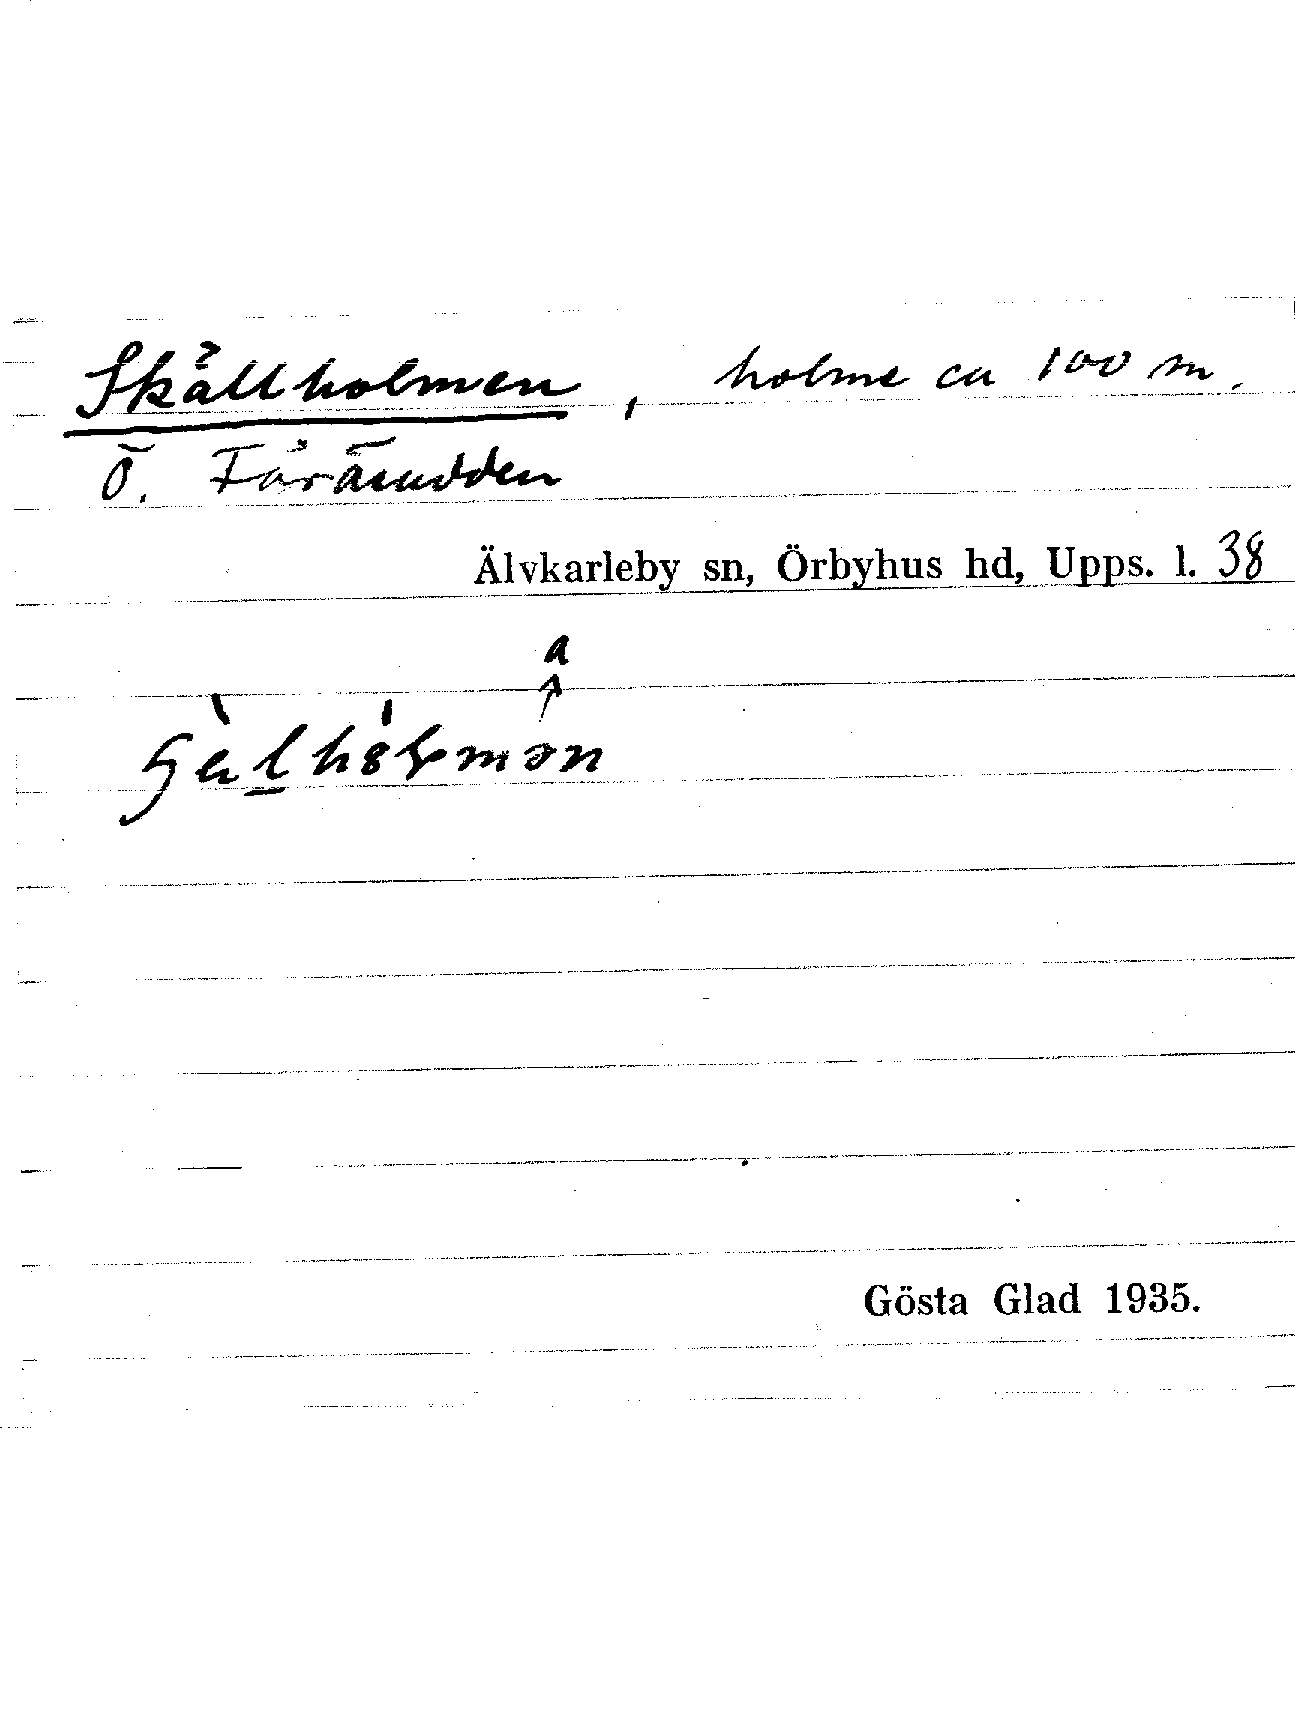 Skällholmen, holme ca 100 m.
Ö. Fåräsudden
Älvkarleby sn, Örbyhus hd, Upps. l. 38
a
Gösta Glad 1935.